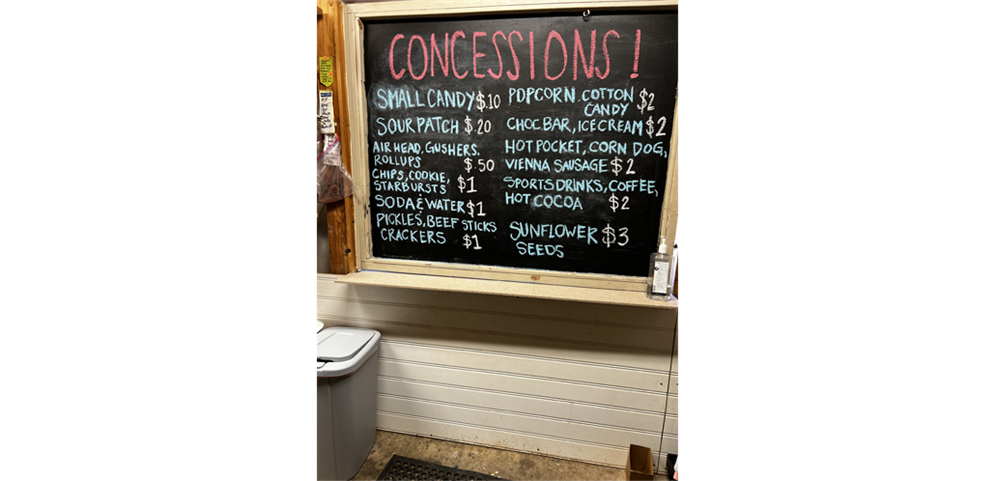 CONCESSIONS!
SMALL CANDY $.10
SOUR PATCH $.20
AIR HEAD, GUSHERS,
ROLLUPS $.50
CHIPS, COOKIE,
STARBURSTS $1
SODA & WATER $1
PICKLES, BEEF STICKS
CRACKERS $1
POPCORN, COTTON
CANDY $2
CHOC.BAR, ICE CREAM $2
HOT POCKET, CORN DOG,
VIENNA SAUSAGE $2
SPORTS DRINKS, COFFEE,
HOT COCOA $2
SUNFLOWER $3
SEEDS